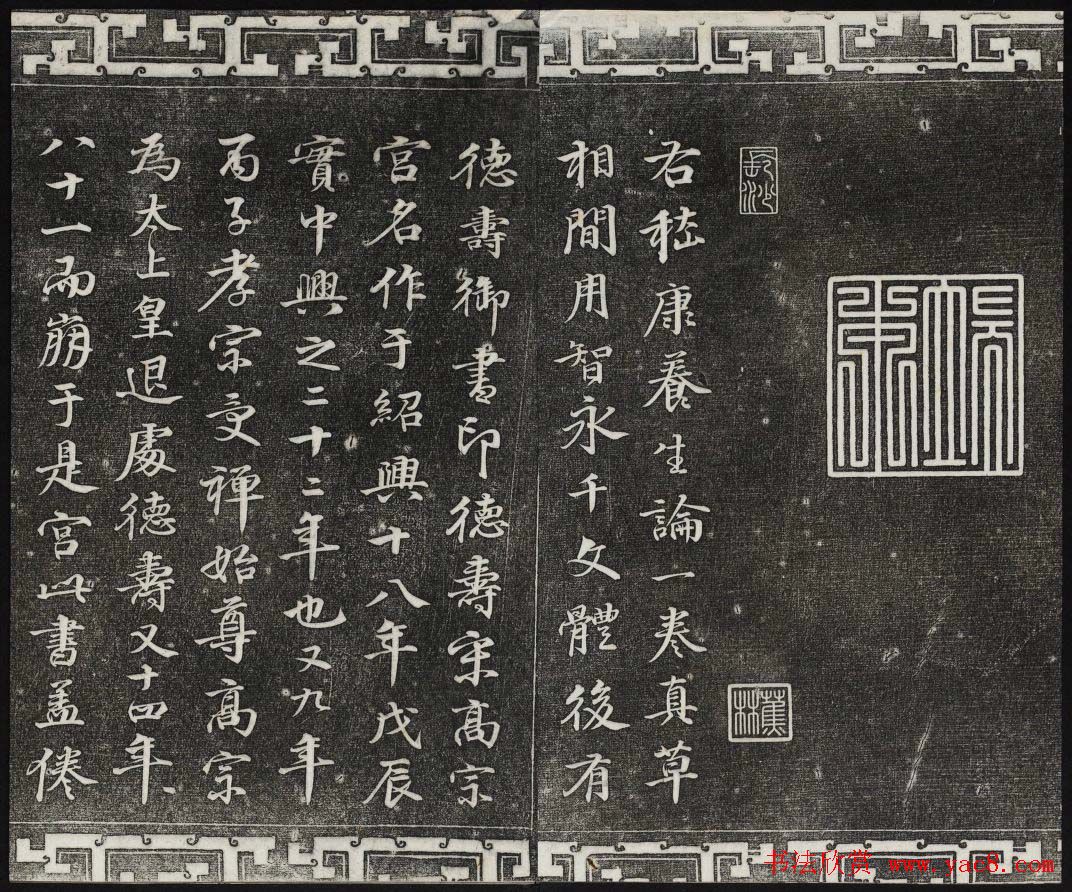 長沙
蕉林
右嵇康養生論一卷真草
相間用智永千文體後有
德壽御書印德壽宋高宗
宫名作于紹興十八年戊辰
實中興之二十二年也又九年
丙子孝宗受禪始尊高宗
為太上皇退處德壽又十四年
八十一而崩于是宫此書盖倦
书法欣赏 www.yac8.com